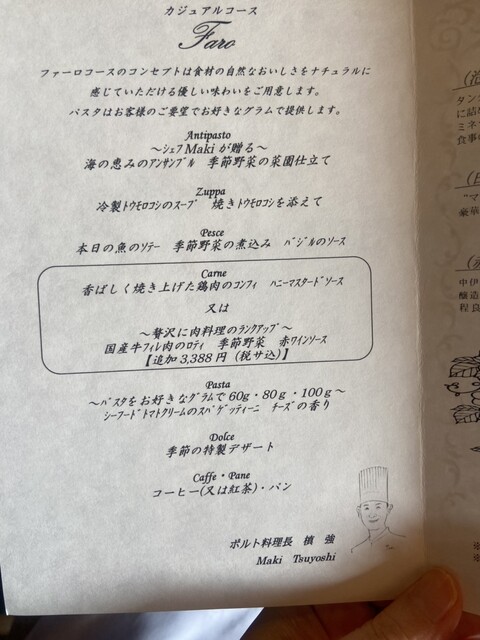 カジュアルコース
Faro
ファーロコースのコンセプトは食材の自然なおいしさをナチュラルに
感じていただける優しい味わいをご用意します。
パスタはお客様のご要望でお好きなグラムで提供します。
Antipasto
～シェフ Maki が贈る～
海の恵みのアンサンブル 季節野菜の菜園仕立て
Zuppa
冷製トウモロコシのスープ 焼きトウモロコシを添えて
Pesce
本日の魚のソテー 季節野菜の煮込み バジルのソース
Carne
香ばしく焼き上げた鶏肉のコンフィ ハニーマスタードソース
又は
～贅沢に肉料理のランクアップ～
国産牛フィレ肉のロティ 季節野菜 赤ワインソース
【追加 3,388 円（税サ込）】
Pasta
～パスタをお好きなグラムで 60g・80g・100g～
シーフードトマトクリームのスパゲッティーニ チーズの香り
Dolce
季節の特製デザート
Caffe・Pane
コーヒー(又は紅茶)・パン
ポルト料理長 槙 強
Maki Tsuyoshi
タン
に詰
ミネ
食事の
豪華
中伊
醸造
程良